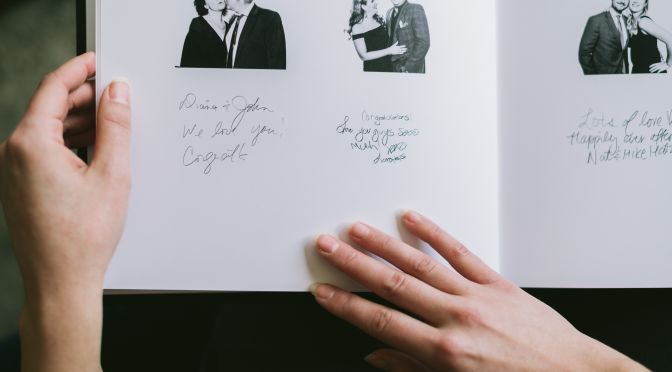 Diana & John
We love you!
Congrats
Congratulations
Love you guys sooo
much xoxo
Lots of love
Happily ever after
Nat & Mike